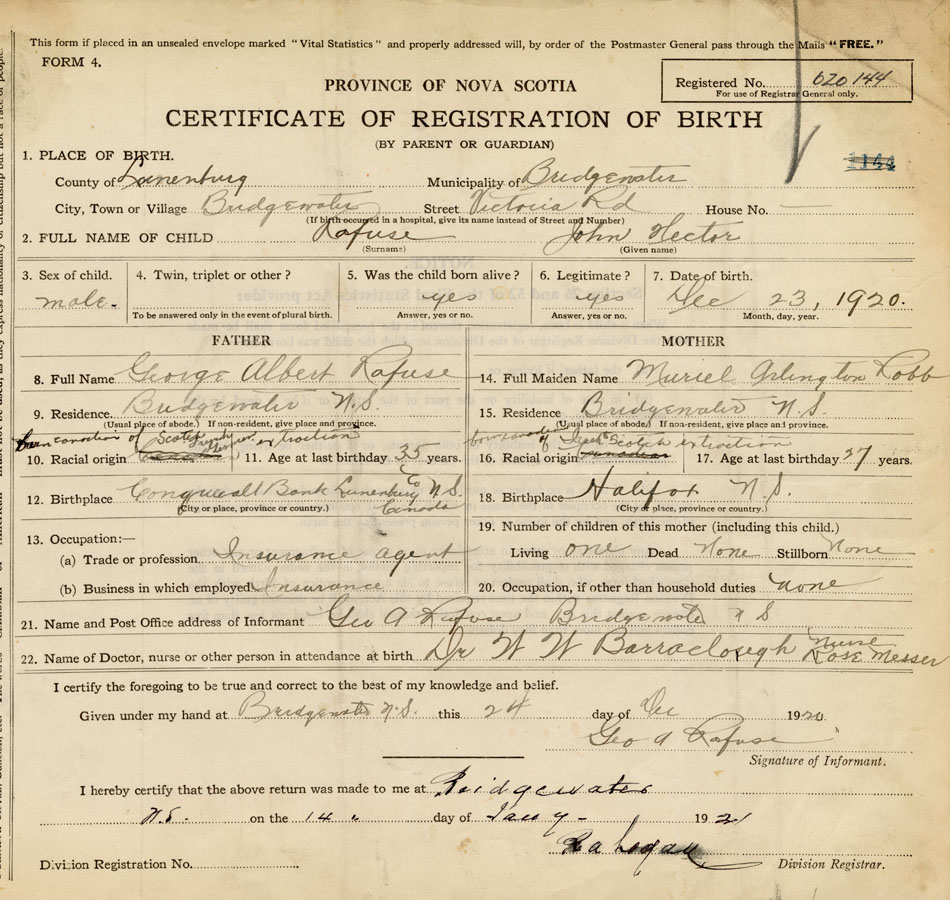 This form if placed in an unsealed envelope marked "Vital Statistics" and properly addressed will, by order of the Postmaster General pass through the Mails "FREE."
FORM 4.
PROVINCE OF NOVA SCOTIA
Registered No. 620144
For use of Registrar General only.
CERTIFICATE OF REGISTRATION OF BIRTH
(BY PARENT OR GUARDIAN)
144
1. PLACE OF BIRTH.
County of Lunenburg Municipality of Bridgewater
City, Town or Village Bridgewater Street Victoria Rd House No. —
(If birth occured in a hospital, give its name instead of Street and Number)
2. FULL NAME OF CHILD Rafuse John Hector
(Surname) (Given name)
3. Sex of child. 4. Twin, triplet or other? 5. Was the child born alive? 6. Legitimate? 7. Date of birth.
male. yes yes Dec 23, 1920.
To be answered only in the event of plural birth. Answer, yes or no. Answer, yes or no. Month, day, year.
FATHER MOTHER
8. Full Name George Albert Rafuse 14. Full Maiden Name Muriel Arlington Robb
9. Residence. Bridgewater N.S. 15. Residence Bridgewater N.S.
(Usual place of abode.) If non-resident, give place and province. (Usual place of abode.) If non-resident, give place and province.
born canadian of Scotch French extraction born canadian of Scotch extraction
10. Racial origin 11. Age at last birthday 35 years. 16. Racial origin canadian 17. Age at last birthday 27 years.
12. Birthplace Conquerall Bank Lunenburg Co N.S. Canada 18. Birthplace Halifax N.S.
(City or place, province or country.) (City or place, province or country.)
13. Occupation:— 19. Number of children of this mother (including this child.)
(a) Trade or profession Insurance agent Living one Dead None Stillborn None
(b) Business in which employed Insurance 20. Occupation, if other than household duties none
21. Name and Post Office address of Informant Geo A Rafuse Bridgewater N S
22. Name of Doctor, nurse or other person in attendance at birth Dr W W Barraclough Nurse Rose Messer
I certify the foregoing to be true and correct to the best of my knowledge and belief.
Given under my hand at Bridgewater N.S. this 24 day of Dec 1920
Geo A Rafuse
Signature of Informant.
I hereby certify that the above return was made to me at Bridgewater
N.S. on the 14 " day of Jany - 1921
Logan
Division Registration No. Division Registrar.